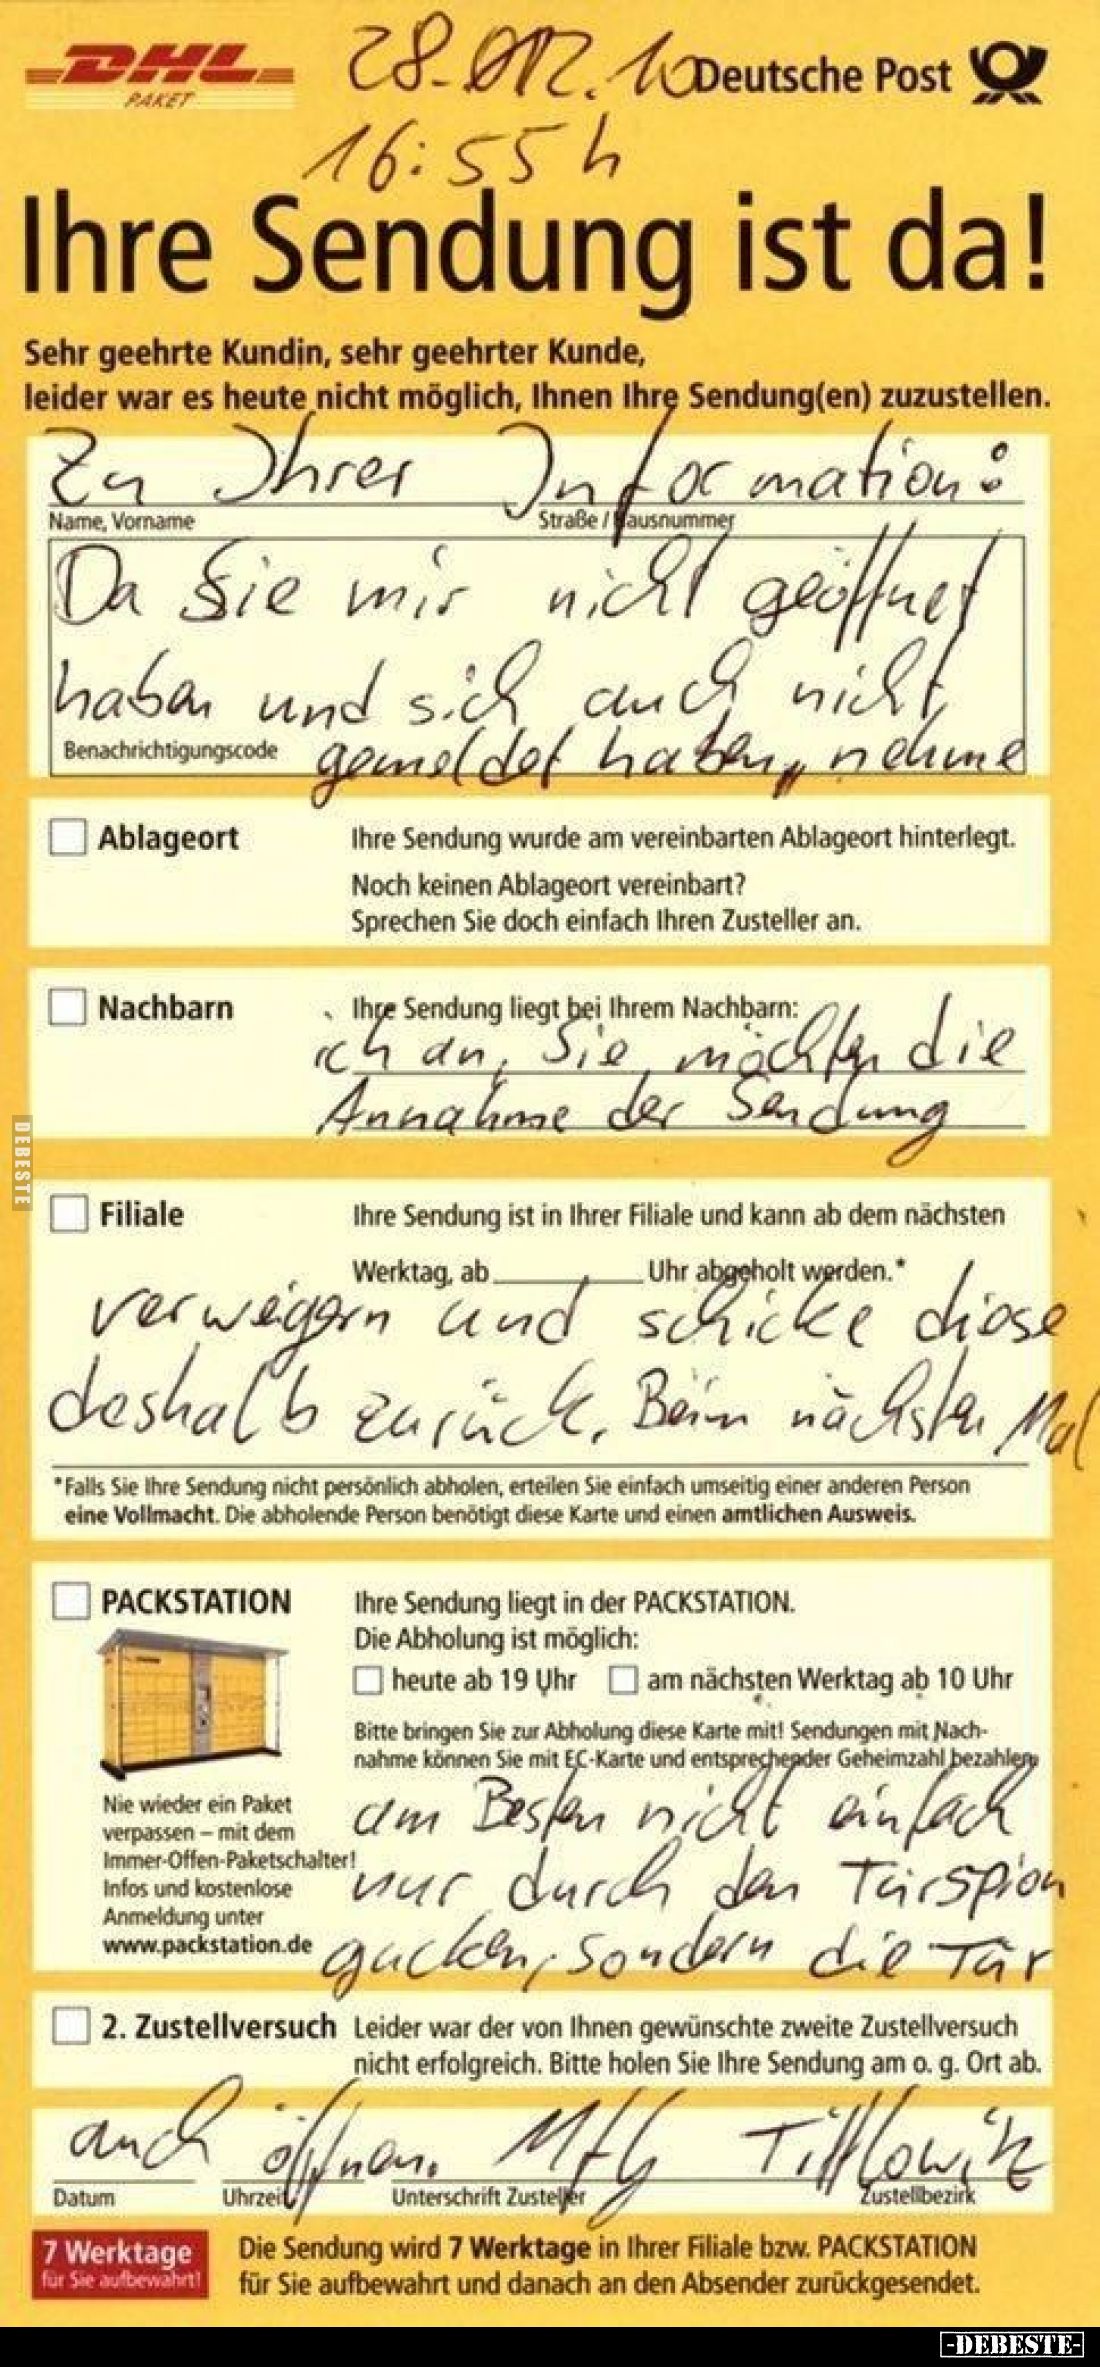 DHL
PAKET
28.012.10
Deutsche Post
16:55 h
Ihre Sendung ist da!
Sehr geehrte Kundin, sehr geehrter Kunde,
leider war es heute nicht möglich, Ihnen Ihre Sendung(en) zuzustellen.
Zu Ihrer Information:
Name, Vorname Straße / Hausnummer
Da Sie mir nicht geöffnet
haben und sich auch nicht
Benachrichtigungscode
gemeldet haben, nehme
Ablageort Ihre Sendung wurde am vereinbarten Ablageort hinterlegt.
Noch keinen Ablageort vereinbart?
Sprechen Sie doch einfach Ihren Zusteller an.
Nachbarn Ihre Sendung liegt bei Ihrem Nachbarn:
ich an, Sie möchten die
Annahme der Sendung
Filiale Ihre Sendung ist in Ihrer Filiale und kann ab dem nächsten
Werktag, ab Uhr abgeholt werden.*
verweigern und schicke diese
deshalb zurück. Beim nächsten Mal
*Falls Sie Ihre Sendung nicht persönlich abholen, erteilen Sie einfach umseitig einer anderen Person
eine Vollmacht. Die abholende Person benötigt diese Karte und einen amtlichen Ausweis.
PACKSTATION Ihre Sendung liegt in der PACKSTATION.
Die Abholung ist möglich:
heute ab 19 Uhr am nächsten Werktag ab 10 Uhr
Bitte bringen Sie zur Abholung diese Karte mit! Sendungen mit Nach-
nahme können Sie mit EC-Karte und entsprechender Geheimzahl bezahlen.
Nie wieder ein Paket
verpassen – mit dem
Immer-Offen-Paketschalter!
Infos und kostenlose
Anmeldung unter
www.packstation.de
am Besten nicht einfach
nur durch den Türspion
gucken, sondern die Tür
2. Zustellversuch Leider war der von Ihnen gewünschte zweite Zustellversuch
nicht erfolgreich. Bitte holen Sie Ihre Sendung am o. g. Ort ab.
auch öffnen. MfG Tifflowitz
Datum Uhrzeit Unterschrift Zusteller Zustellbezirk
7 Werktage
für Sie aufbewahrt!
Die Sendung wird 7 Werktage in Ihrer Filiale bzw. PACKSTATION
für Sie aufbewahrt und danach an den Absender zurückgesendet.
DEBESTE
-DEBESTE-